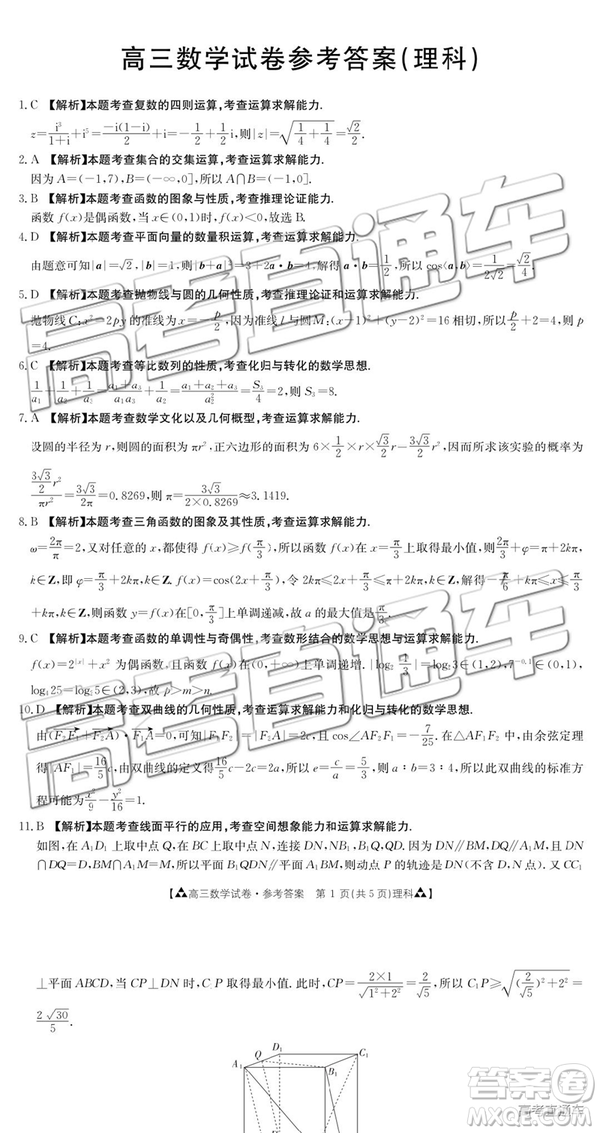 高三数学试卷参考答案(理科)
1. C 【解析】本题考查复数的四则运算,考查运算求解能力.
z=i³/(1+i)+i⁵=-i(1-i)/2+i=-1/2+1/2i,则|z|=√(1/4+1/4)=√2/2.
2. A 【解析】本题考查集合的交集运算,考查运算求解能力.
因为A=(-1,7),B=(-∞,0],所以A∩B=(-1,0].
3. B 【解析】本题考查函数的图象与性质,考查推理论证能力.
函数f(x)是偶函数,当x∈(0,1)时,f(x)<0,故选B.
4. D 【解析】本题考查平面向量的数量积运算,考查运算求解能力.
由题意可知|a|=√2,|b|=1,则|b+a|²=3+2a·b=4,解得a·b=1/2,所以cos⟨a,b⟩=1/(2√2)=√2/4.
5. D 【解析】本题考查抛物线与圆的几何性质,考查推理论证和运算求解能力.
抛物线C:x²=2py的准线为x=-p/2,因为准线l与圆M:(x-1)²+(y-2)²=16相切,所以p/2+2=4,则p
=4.
6. C 【解析】本题考查等比数列的性质,考查化归与转化的数学思想.
1/a₁+1/a₂+1/a₃=(a₁+a₃)/(a₁a₃)+1/a₂=(a₁+a₂+a₃)/a₂²=S₃/4=2,则S₃=8.
7. A 【解析】本题考查数学文化以及几何概型,考查运算求解能力.
设圆的半径为r,则圆的面积为πr²,正六边形的面积为6×1/2×r×√3/2 r=3√3/2 r²,因而所求该实验的概率为
(3√3/2 r²)/(πr²)=3√3/(2π)=0.8269,则π=3√3/(2×0.8269)≈3.1419.
8. B 【解析】本题考查三角函数的图象及其性质,考查运算求解能力.
ω=2π/π=2,又对任意的x,都使得f(x)≥f(π/3),所以f(x)在x=π/3上取得最小值,则2π/3+φ=π+2kπ,
k∈Z,即φ=π/3+2kπ,k∈Z,所以f(x)=cos(2x+π/3),令2kπ≤2x+π/3≤π+2kπ,k∈Z,解得-π/6+kπ≤x≤π/3
+kπ,k∈Z,故函数y=f(x)在[0,π/3]上单调递减,故选B.
9. C 【解析】本题考查函数的单调性与奇偶性,考查数形结合的数学思想与运算求解能力.
f(x)=2^|x|+x²为偶函数,且函数f(x)在(0,+∞)上单调递增.|log₂ 1/3|=log₂3∈(1,2),7^(-0.1)∈(0,1),
log₄25=log₂5∈(2,3),故p>m>n.
10. D 【解析】本题考查双曲线的几何性质,考查运算求解能力和化归与转化的数学思想.
由(F₂F₁+F₂A)·F₁A=0,可知|F₁F₂|=|F₂A|=2c,且cos∠AF₂F₁=-7/25.在△AF₁F₂中,由余弦定理
得|AF₁|=16/5 c,由双曲线的定义可得16/5 c-2c=2a,所以e=c/a=5/3,则a∶b=3∶4,所以此双曲线的标准方
程可能为x²/9-y²/16=1.
11. B 【解析】本题考查线面平行的应用,考查空间想象能力和运算求解能力.
如图,在A₁D₁上取中点Q,在BC上取中点N,连接DN,NB₁,B₁Q,QD.因为DN∥BM,DQ∥AM,且DN
∩DQ=D,BM∩AM=M,所以平面B₁QDN∥平面ABM,则动点P的轨迹是DN(不含D,N两点).又CC₁
【高三数学试卷·参考答案 第1页(共5页)理科】
⊥平面ABCD,当CP⊥DN时,C₁P取得最小值.此时,CP=(2×1)/√(1²+2²)=2/√5,所以C₁P≥√((2/√5)²+2²)=
2√30/5.
D₁
Q
C₁
A₁
B₁
高考直通车
答案圈
MXQE.COM
高考直通车